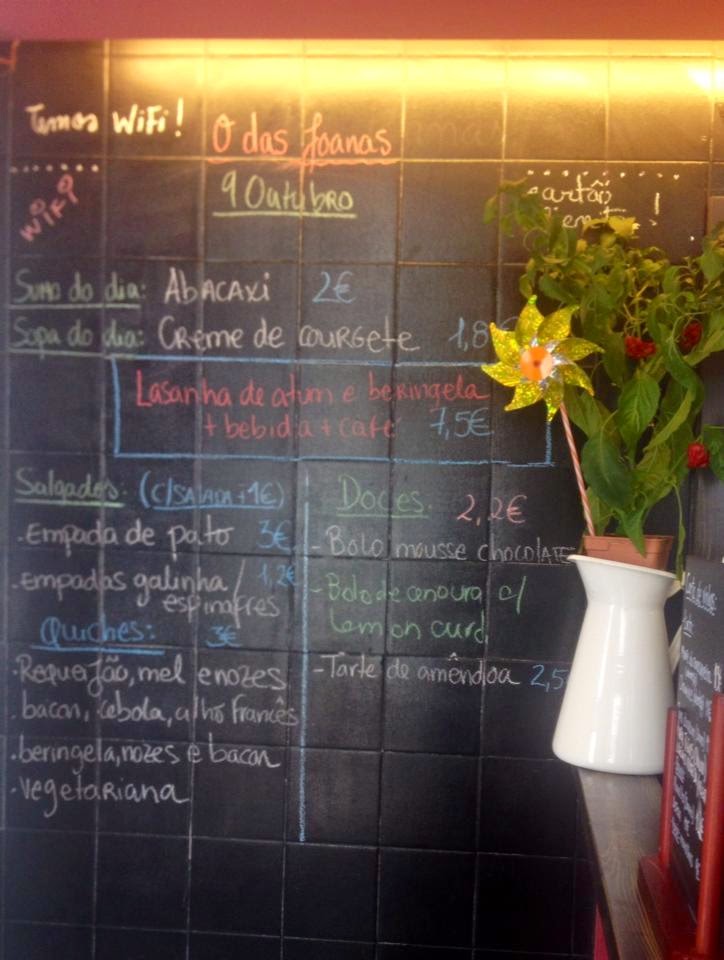 Temos WiFi!
O das Joanas
WiFi
9 Outubro
cartão
!
Sumo do dia: Abacaxi 2€
Sopa do dia: Creme de courgete 1,8
Lasanha de atum e beringela
+ bebida + café 7,5€
Salgados: (c/salada +1€)
.Empada de pato 3€
.empadas galinha/ 1,2€
espinafres
Quiches: 3€
.Requeijão, mel e nozes
.bacon, cebola, alho francês
.beringela, nozes e bacon
.vegetariana
Doces: 2,2€
- Bolo mousse chocolate
- Bolo de cenoura c/
lemon curd
- Tarte de amêndoa 2,5